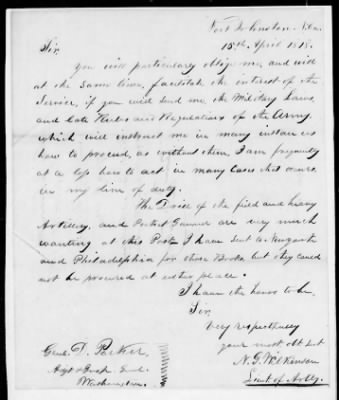 Fort Johnston N.Ca.
15th April 1818.
Sir,
You will particularly oblige me, and will
at the same time, facilitate the interest of the
Service, if you will send me the Military Laws,
and late Rules and Regulations of the Army,
which will instruct me in many instances
how to proceed, as without them, I am frequently
at a loss how to act in many Cases that occur
in my line of duty.
The Drill of the field and heavy
Artillery, and Pocket Gunner are very much
wanting at this Post. I have sent to Newyork
and Philadelphia for these Books but they could
not be procured at either place.
I have the honor to be,
Sir,
Very respectfully
your most obt Sevt
N. G. Wilkinson
Lieut of Arty.
Genl. D. Parker
Adjt & Insp Genl
Washington.